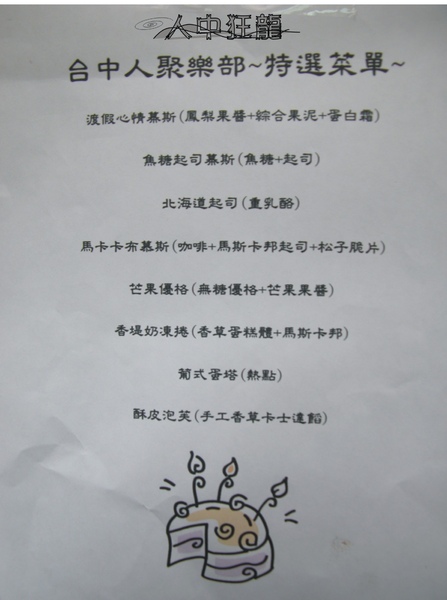 人中狂龍
台中人聚樂部~特選菜單~
渡假心情慕斯(鳳梨果醬+綜合果泥+蛋白霜)
焦糖起司慕斯(焦糖+起司)
北海道起司(重乳酪)
馬卡卡布慕斯(咖啡+馬斯卡邦起司+松子脆片)
芒果優格(無糖優格+芒果果醬)
香堤奶凍捲(香草蛋糕體+馬斯卡邦)
葡式蛋塔(熱點)
酥皮泡芙(手工香草卡士達餡)